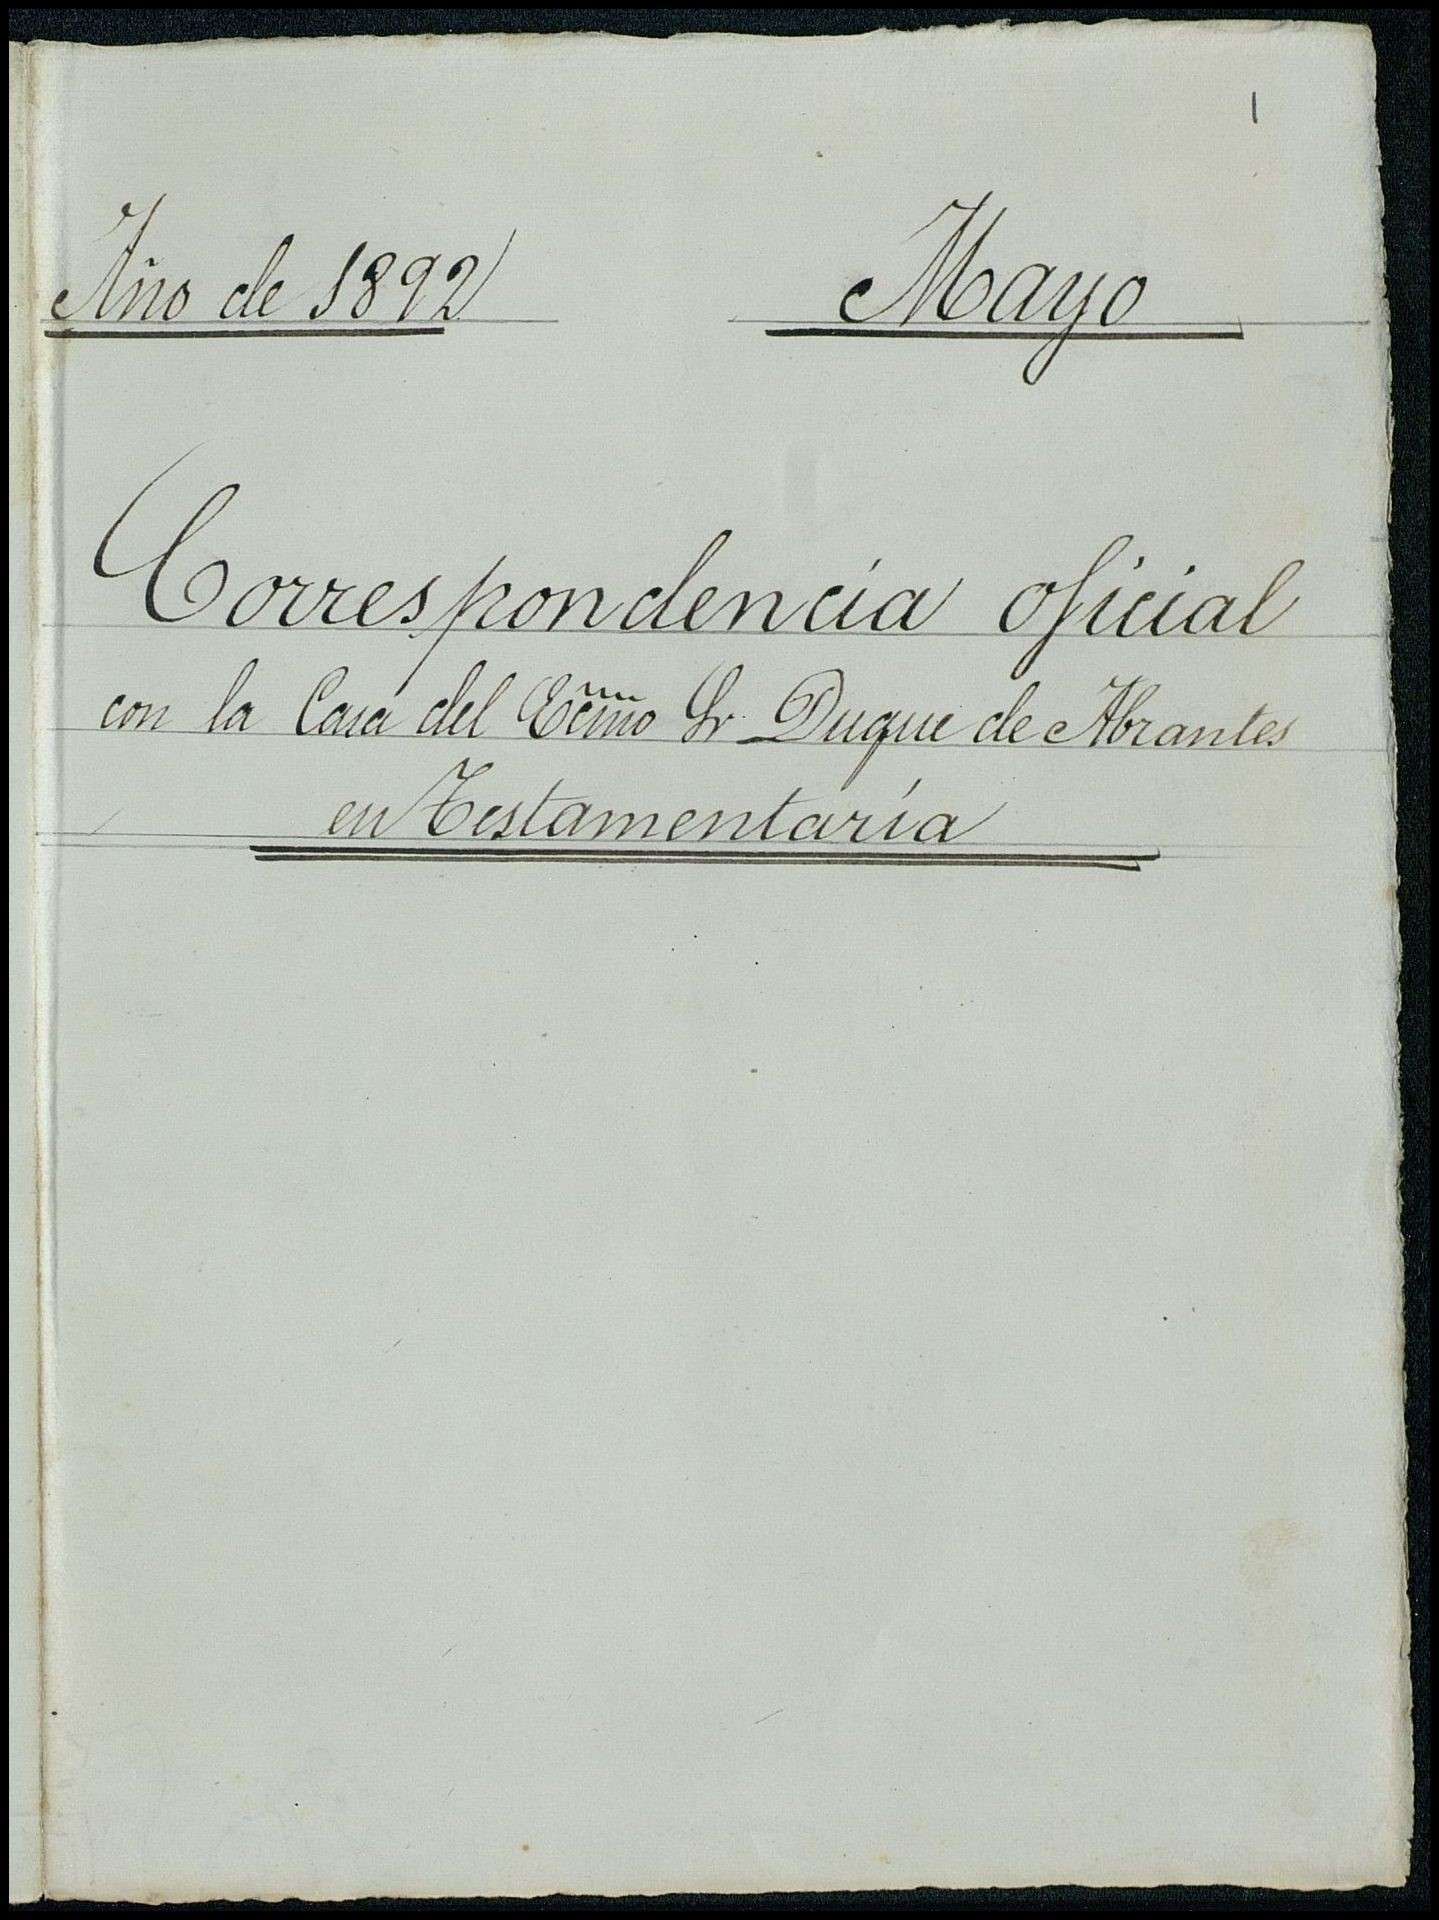 1
Año de 1892 Mayo
Correspondencia oficial
con la Casa del Ecmo Sr. Duque de Abrantes
en Testamentaría